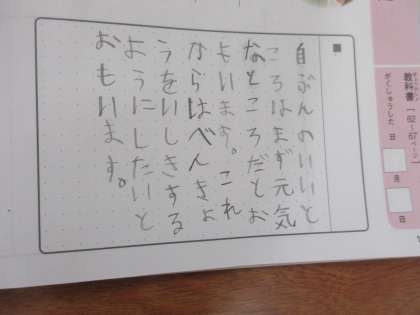 教科書
62〜67ページ
がくしゅうした日
月
日
■
自ぶんのいいと
ころはまず元気
なところだとお
もいます。これ
からはべんきょ
うをいしきする
ようにしたいと
おもいます。